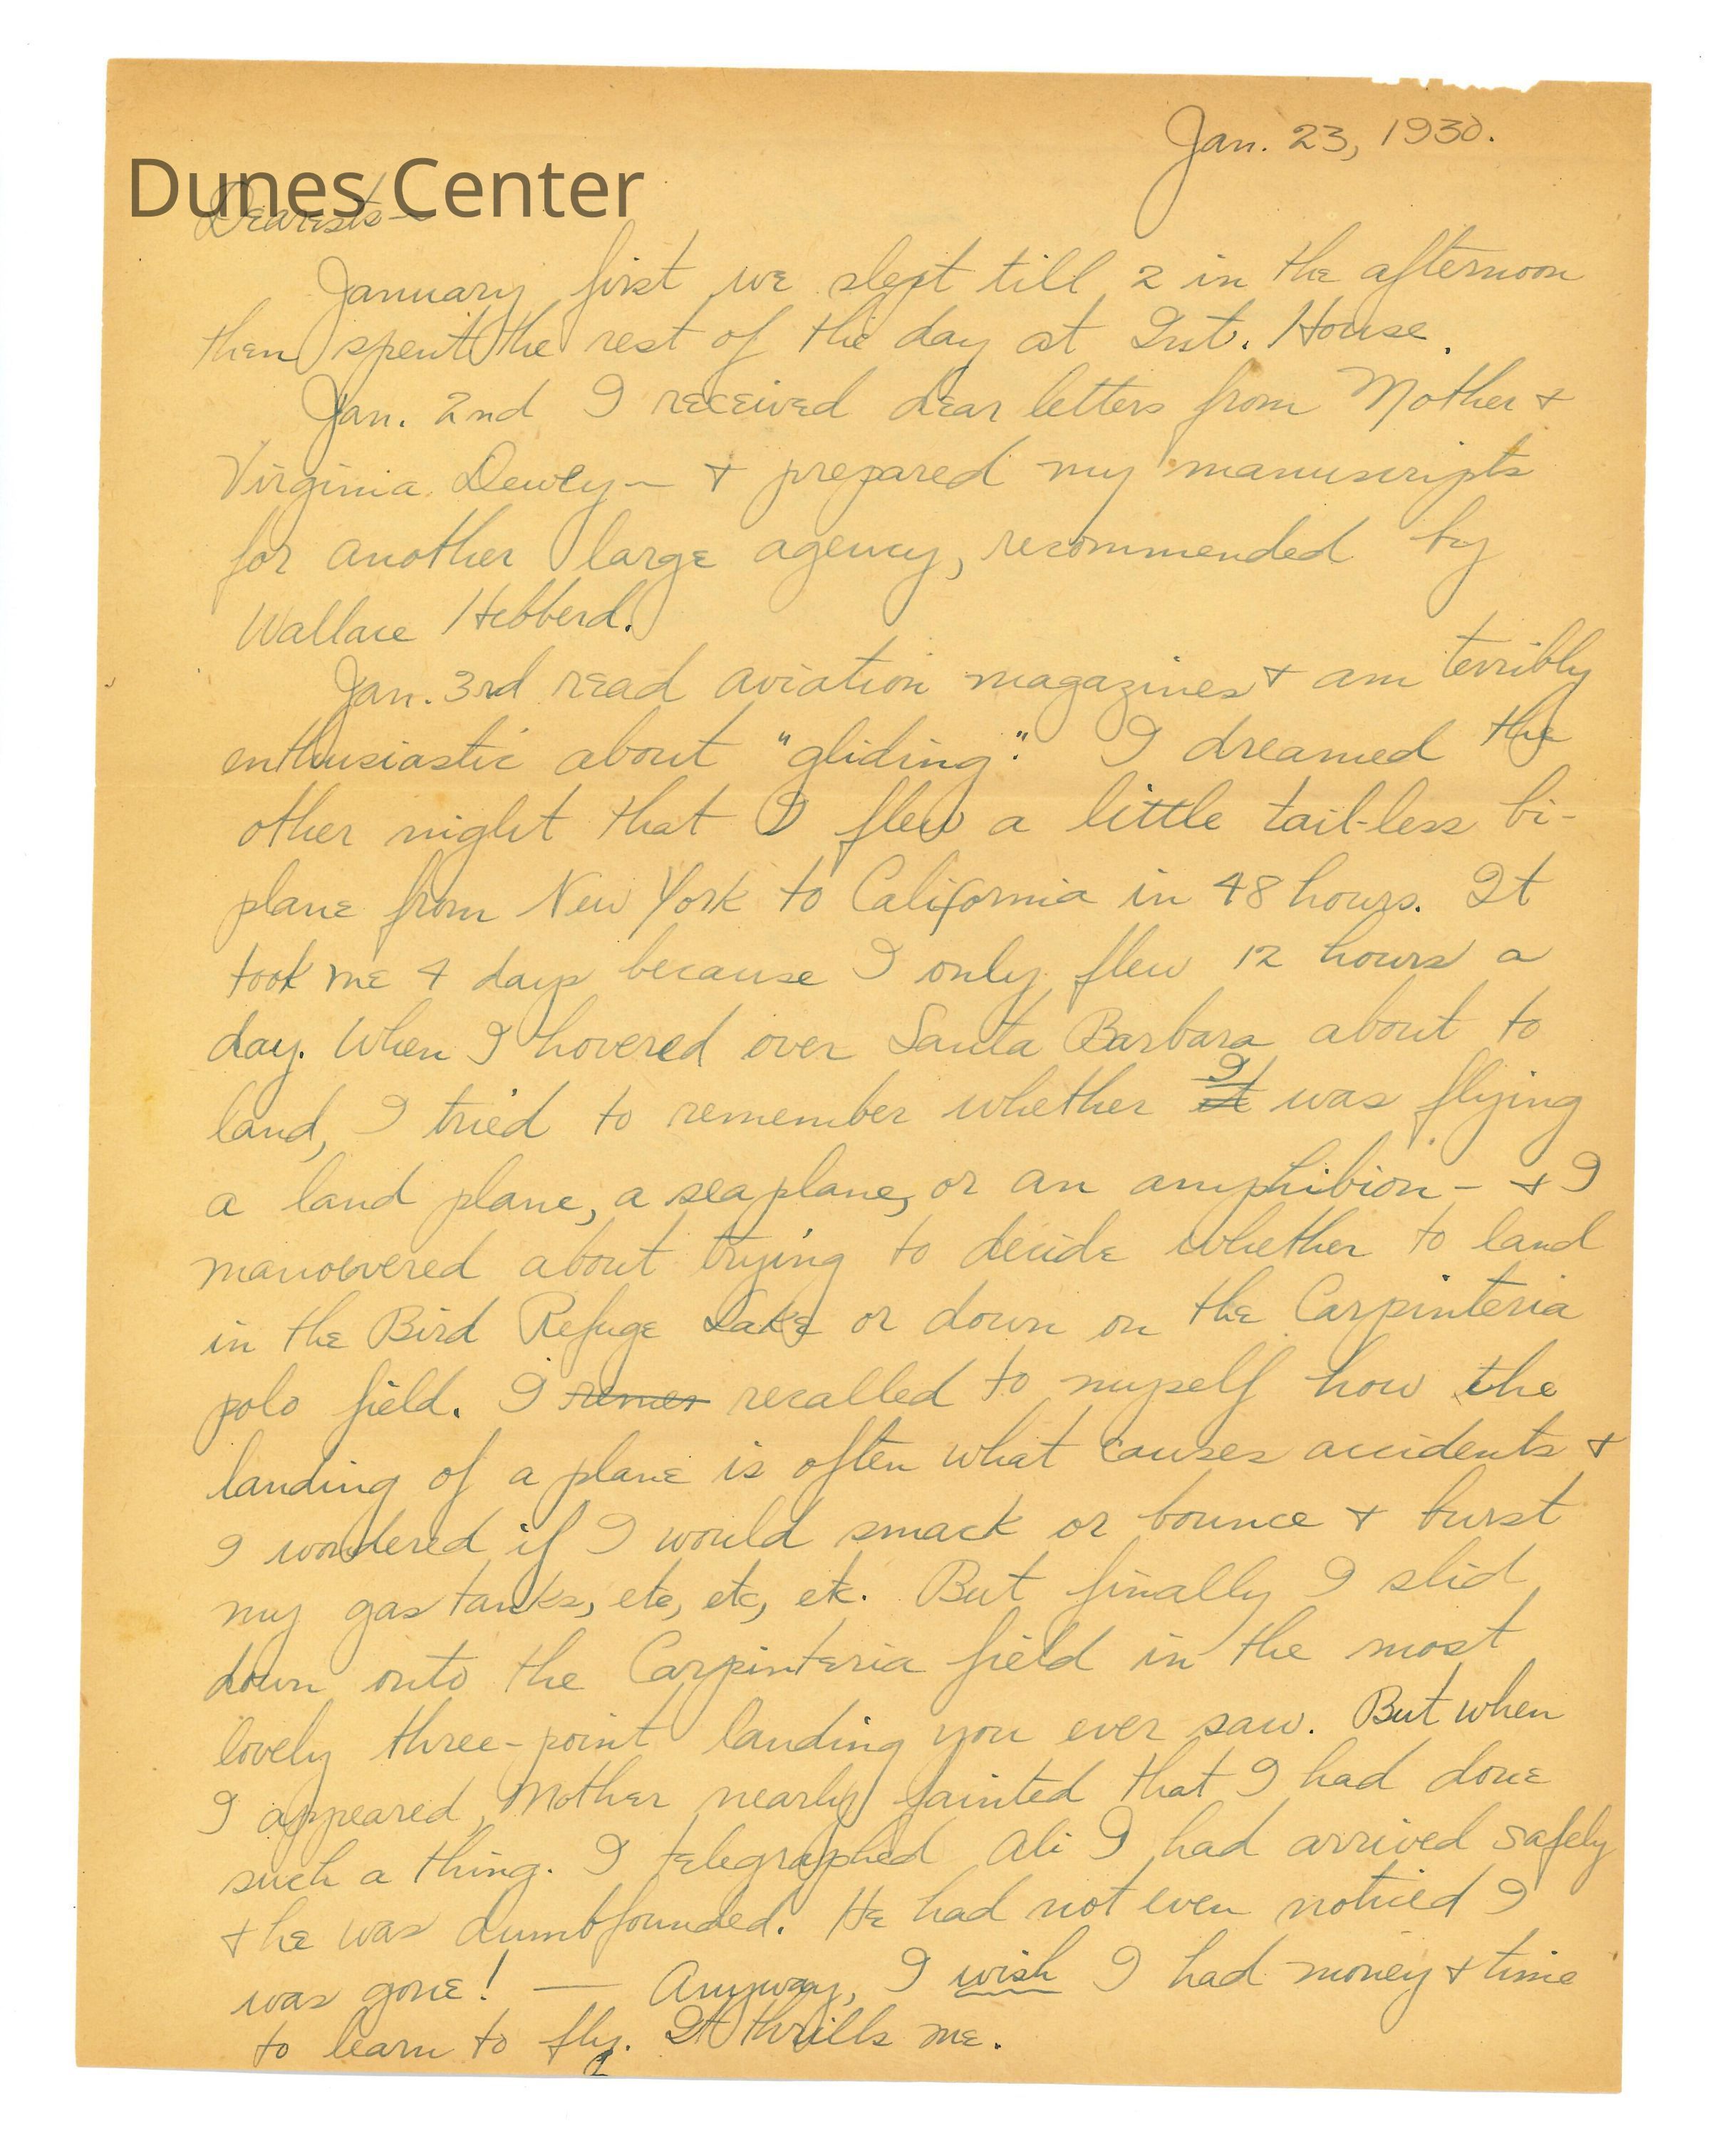 Jan. 23, 1930.
Dunes Center
Dearests—
January first we slept till 2 in the afternoon
then spent the rest of the day at Int. House.
Jan. 2nd I received dear letters from Mother &
Virginia Dewey — & prepared my manuscripts
for another large agency, recommended by
Wallace Hebberd.
Jan. 3rd read aviation magazines & am terribly
enthusiastic about "gliding." I dreamed the
other night that I flew a little tail-less bi-
plane from New York to California in 48 hours. It
took me 4 days because I only flew 12 hours a
day. When I hovered over Santa Barbara about to
land, I tried to remember whether it I was flying
a land plane, a seaplane, or an amphibion - & I
manoevered about trying to decide whether to land
in the Bird Refuge Lake or down on the Carpinteria
polo field. I remem recalled to myself how the
landing of a plane is often what causes accidents &
I wondered if I would smack or bounce & burst
my gas tanks, etc, etc, etc. But finally I slid
down onto the Carpinteria field in the most
lovely three-point landing you ever saw. But when
I appeared, Mother nearly fainted that I had done
such a thing. I telegraphed Ali I had arrived safely
& he was dumbfounded. He had not even noticed I
was gone! — Anyway, I wish I had money & time
to learn to fly. It thrills me.
1